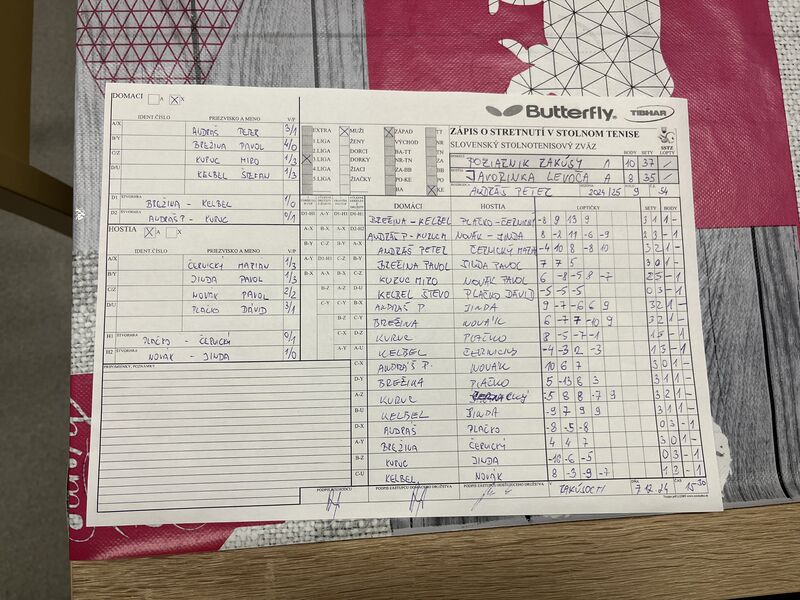 DOMÁCI A X
Butterfly TIBHAR
IDENT.ČÍSLO PRIEZVISKO A MENO V/P
A/X ANDRÁŠ PETER 3/1
B/Y BREŽINA PAVOL 4/0
C/Z KURUC MIRO 1/3
D/U KELBEL ŠTEFAN 1/3
D1 ŠTVORHRA BREŽINA - KELBEL 1/0
D2 ŠTVORHRA ANDRÁŠ P - KURUC 0/1
EXTRA MUŽI ZÁPAD TT
LIGA ŽENY VÝCHOD NR
LIGA DORCI BA-TT TN
LIGA DORKY NR-TN
LIGA ŽIACI ZA-BB
5 LIGA ŽIAČKY PO-KE
BA KE
ZÁPIS O STRETNUTÍ V STOLNOM TENISE
SLOVENSKÝ STOLNOTENISOVÝ ZVÄZ
SSTZ
BODY SETY LOPTY
POŽIARNIK ZAKÚSY A 10 37
JAVORINKA LEVOČA A 8 35
ANDRÁŠ PETER 2024/25 9
HOSTIA A X
IDENT.ČÍSLO PRIEZVISKO A MENO V/P
A/X ČERNICKÝ MARIAN 1/3
B/Y JINDA PAVOL 1/3
C/Z NOVÁK PAVOL 2/2
D/U PLAČKO DÁVID 3/1
H1 ŠTVORHRA PLAČKO - ČERNICKÝ 0/1
H2 ŠTVORHRA NOVÁK - JINDA 1/0
PRIPOMIENKY, POZNÁMKY
DOMÁCI HOSTIA LOPTIČKY SETY BODY
BREŽINA - KELBEL PLAČKO - ČERNICKÝ -8 9 13 9 3 1 1 -
ANDRÁŠ P - KURUC NOVÁK - JINDA 8 -8 11 -6 -9 2 3 - 1
ANDRÁŠ PETER ČERNICKÝ -4 10 8 -8 10 3 2 1 -
BREŽINA PAVOL JINDA PAVOL 7 7 5 3 0 1 -
KURUC MIRO NOVÁK PAVOL 6 -8 -5 8 -7 2 3 - 1
KELBEL ŠTEVO PLAČKO DÁVID -5 -5 -5 0 3 - 1
ANDRÁŠ P. JINDA 9 -7 -6 6 9 3 2 1 -
BREŽINA NOVÁK 6 -7 7 -10 9 3 2 1 -
KURUC PLAČKO 8 -5 -7 -1 1 3 - 1
KELBEL ČERNICKÝ -4 -3 2 -3 1 3 - 1
ANDRÁŠ P. NOVÁK 10 6 7 3 0 1 -
BREŽINA PLAČKO 5 -13 8 3 3 1 1 -
KURUC ČERNICKÝ -5 8 8 -7 9 3 2 1 -
KELBEL JINDA -9 7 9 9 3 1 1 -
ANDRÁŠ PLAČKO -8 -5 -8 0 3 - 1
BREŽINA ČERNICKÝ 4 4 7 3 0 1 -
KURUC JINDA -10 -6 -5 0 3 - 1
KELBEL NOVÁK 8 -3 -9 -7 1 3 - 1
PODPIS ROZHODCU PODPIS ZÁSTUPCU DOMÁCEHO DRUŽSTVA PODPIS ZÁSTUPCU HOSŤUJÚCEHO DRUŽSTVA DŇA 7.12.24 ČAS 15-30